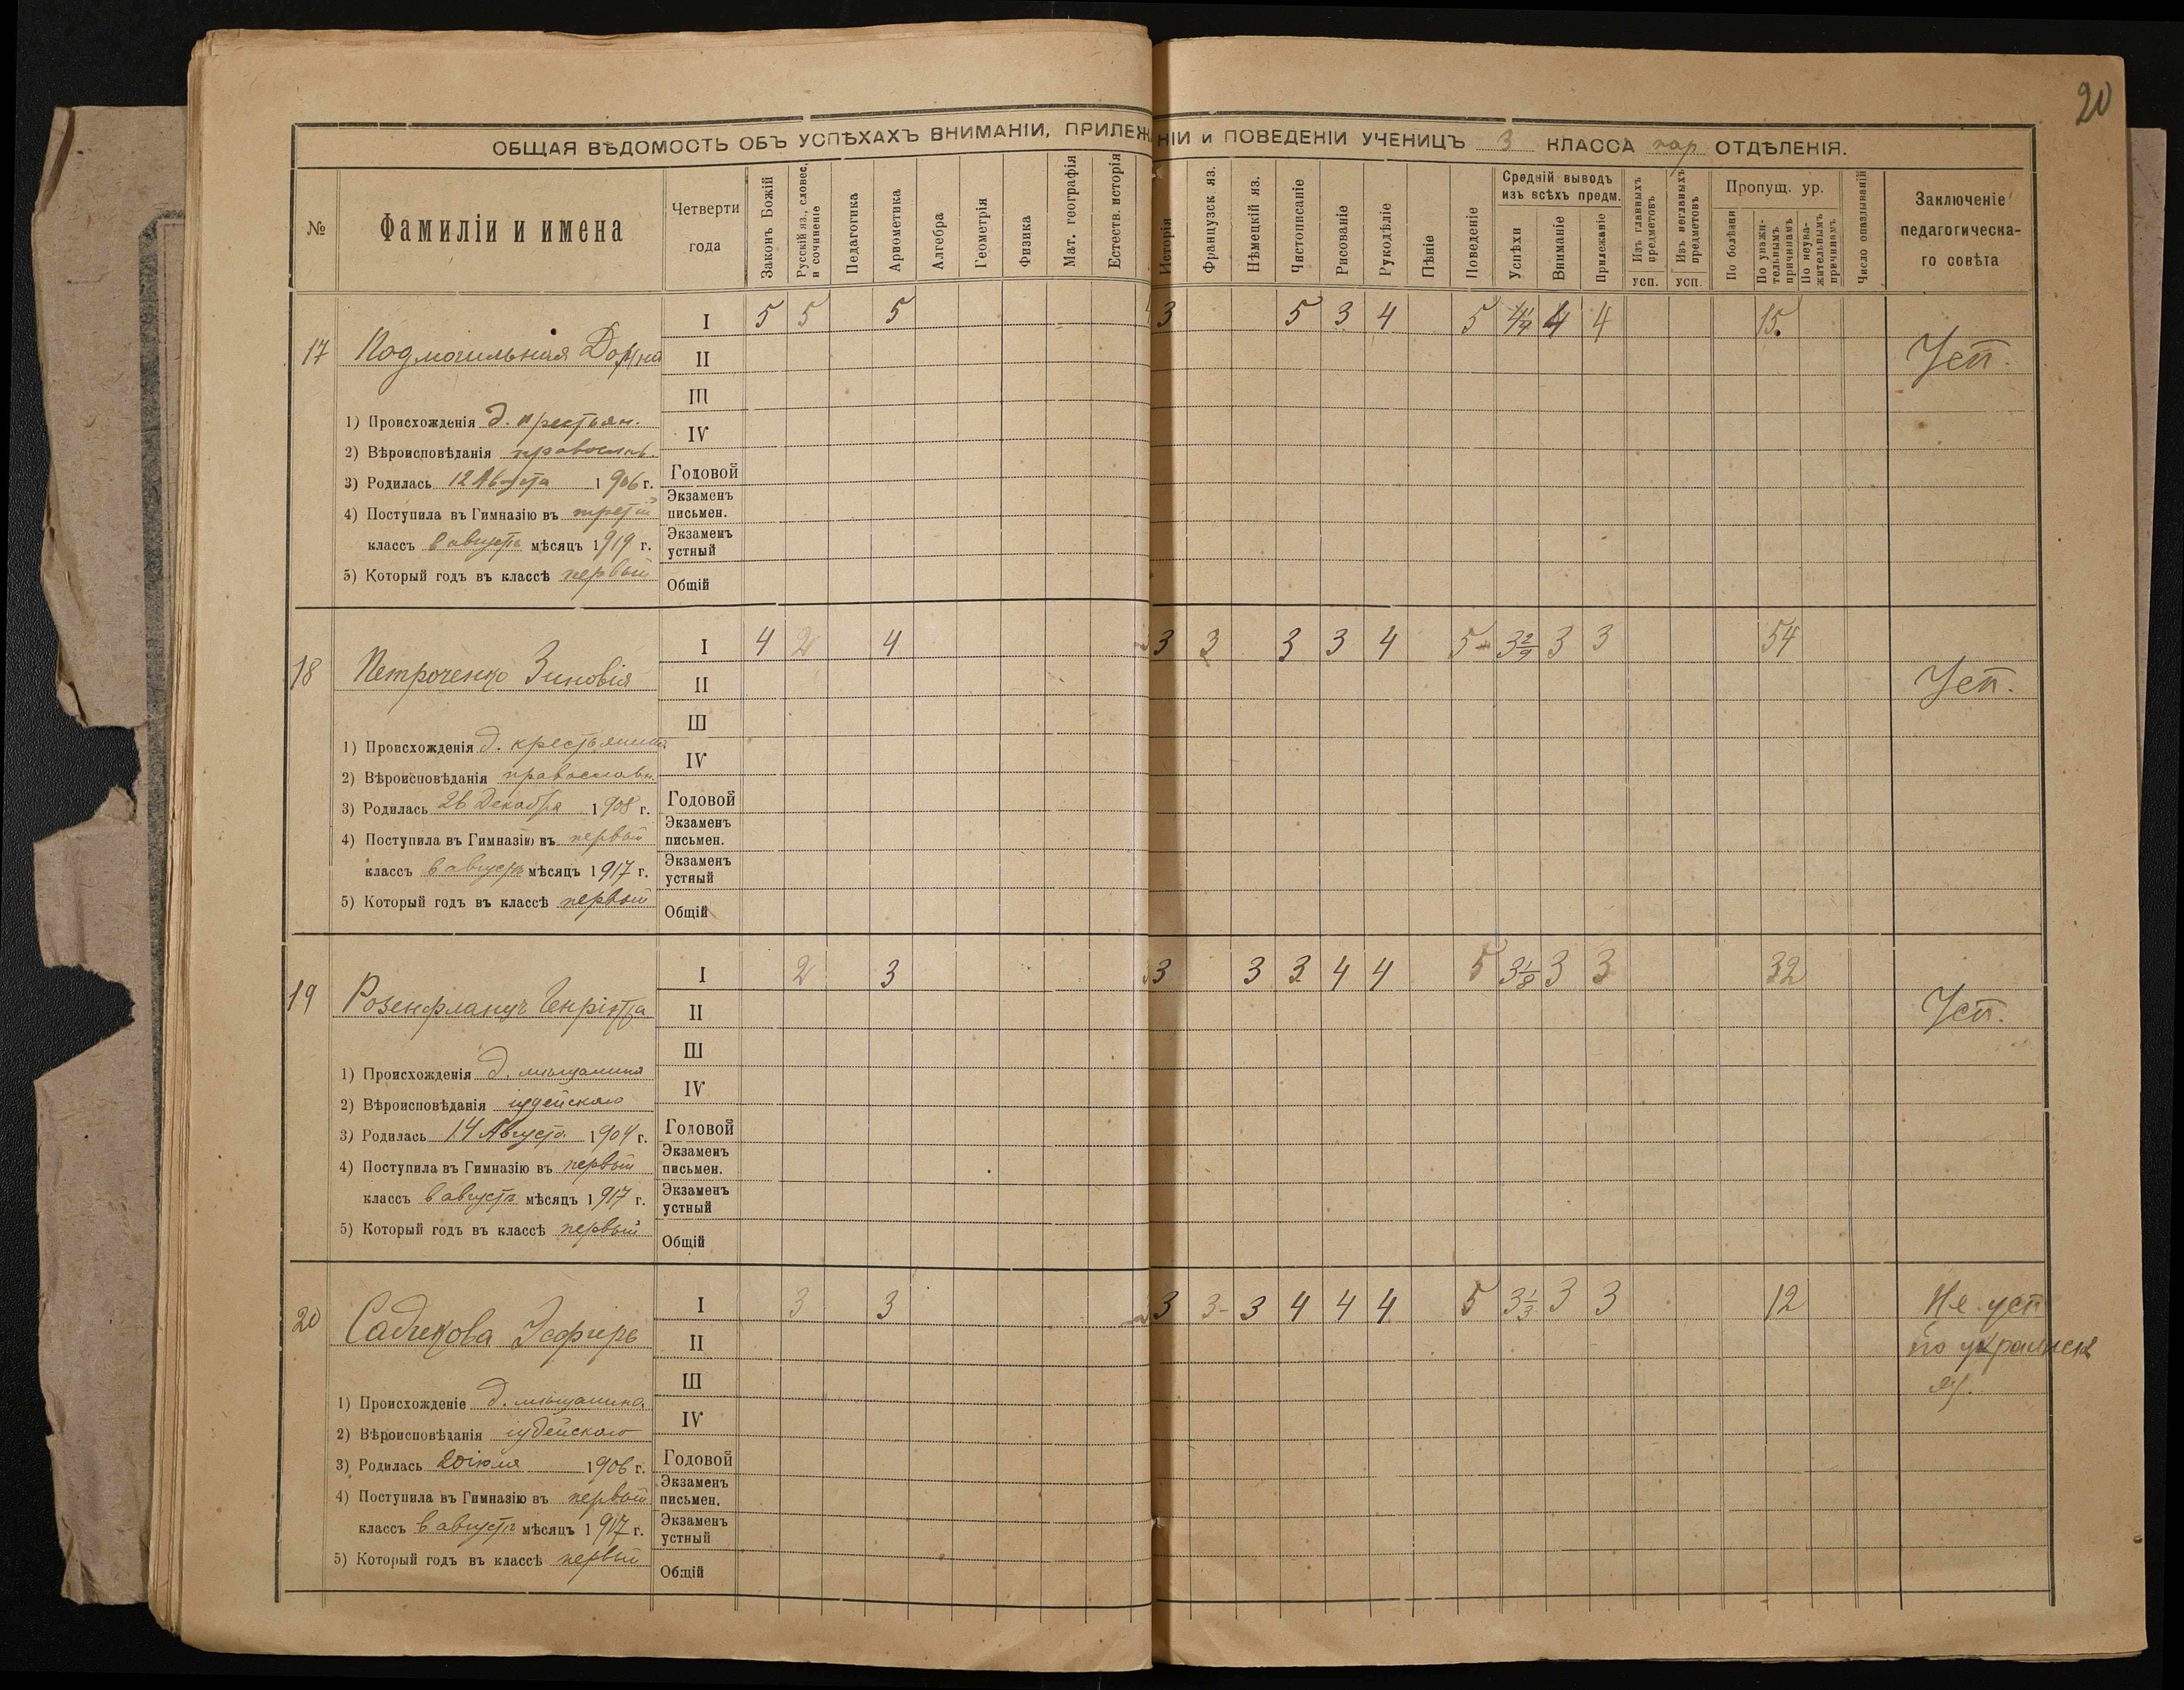 20
ОБЩАЯ ВѢДОМОСТЬ ОБЪ УСПѢХАХЪ ВНИМАНІИ, ПРИЛЕЖАНІИ и ПОВЕДЕНІИ УЧЕНИЦЪ 3 КЛАССА пар ОТДѢЛЕНІЯ.
№ Фамиліи и имена Четверти года Законъ Божій Русскій яз., словес. и сочиненіе Педагогика Арифметика Алгебра Геометрія Физика Мат. географія Естеств. исторія Исторія Французск яз. Нѣмецкій яз. Чистописаніе Рисованіе Рукодѣліе Пѣніе Поведеніе Средній выводъ изъ всѣхъ предм. Успѣхи Вниманіе Прилежаніе Изъ главныхъ предметовъ усп. Изъ неглавныхъ предметовъ усп. Пропущ. ур. По болѣзни По уважительнымъ причинамъ По неуважительнымъ причинамъ Число опаздываній Заключеніе педагогическаго совѣта
17 Подмогильная Домна I 5 5 5 3 5 3 4 5 4 4 15. Усп.
II
III
1) Происхожденія д. крестьян.
IV
2) Вѣроисповѣданія православ.
Годовой
3) Родилась 12 Августа 1906 г.
Экзаменъ письмен.
4) Поступила въ Гимназію въ третій
классъ в августѣ мѣсяцъ 1919 г.
Экзаменъ устный
5) Который годъ въ классѣ первый
Общій
18 Петроченко Зиновія I 4 2 4 3 3 3 3 4 5 3 2/9 3 3 54 Усп.
II
III
1) Происхожденія д. крестьянина
IV
2) Вѣроисповѣданія православн.
Годовой
3) Родилась 26 Декабря 1908 г.
Экзаменъ письмен.
4) Поступила въ Гимназію въ первый
классъ в августѣ мѣсяцъ 1917 г.
Экзаменъ устный
5) Который годъ въ классѣ первый
Общій
19 I 2 3 3 3 3 4 4 5 3 1/8 3 3 32 Усп.
II
III
1) Происхожденія д. мѣщанина
IV
2) Вѣроисповѣданія іудейскаго
Годовой
3) Родилась 14 Августа 1904 г.
Экзаменъ письмен.
4) Поступила въ Гимназію въ первый
классъ в августѣ мѣсяцъ 1917 г.
Экзаменъ устный
5) Который годъ въ классѣ первый
Общій
20 Садикова I 3 3 3 3- 3 4 4 4 5 3 1/3 3 3 12 Не усп
II по украинск
III яз.
1) Происхожденіе д. мѣщанина
IV
2) Вѣроисповѣданія іудейскаго
Годовой
3) Родилась 20 іюля 1906 г.
Экзаменъ письмен.
4) Поступила въ Гимназію въ первый
классъ в августѣ мѣсяцъ 1917 г.
Экзаменъ устный
5) Который годъ въ классѣ первый
Общій